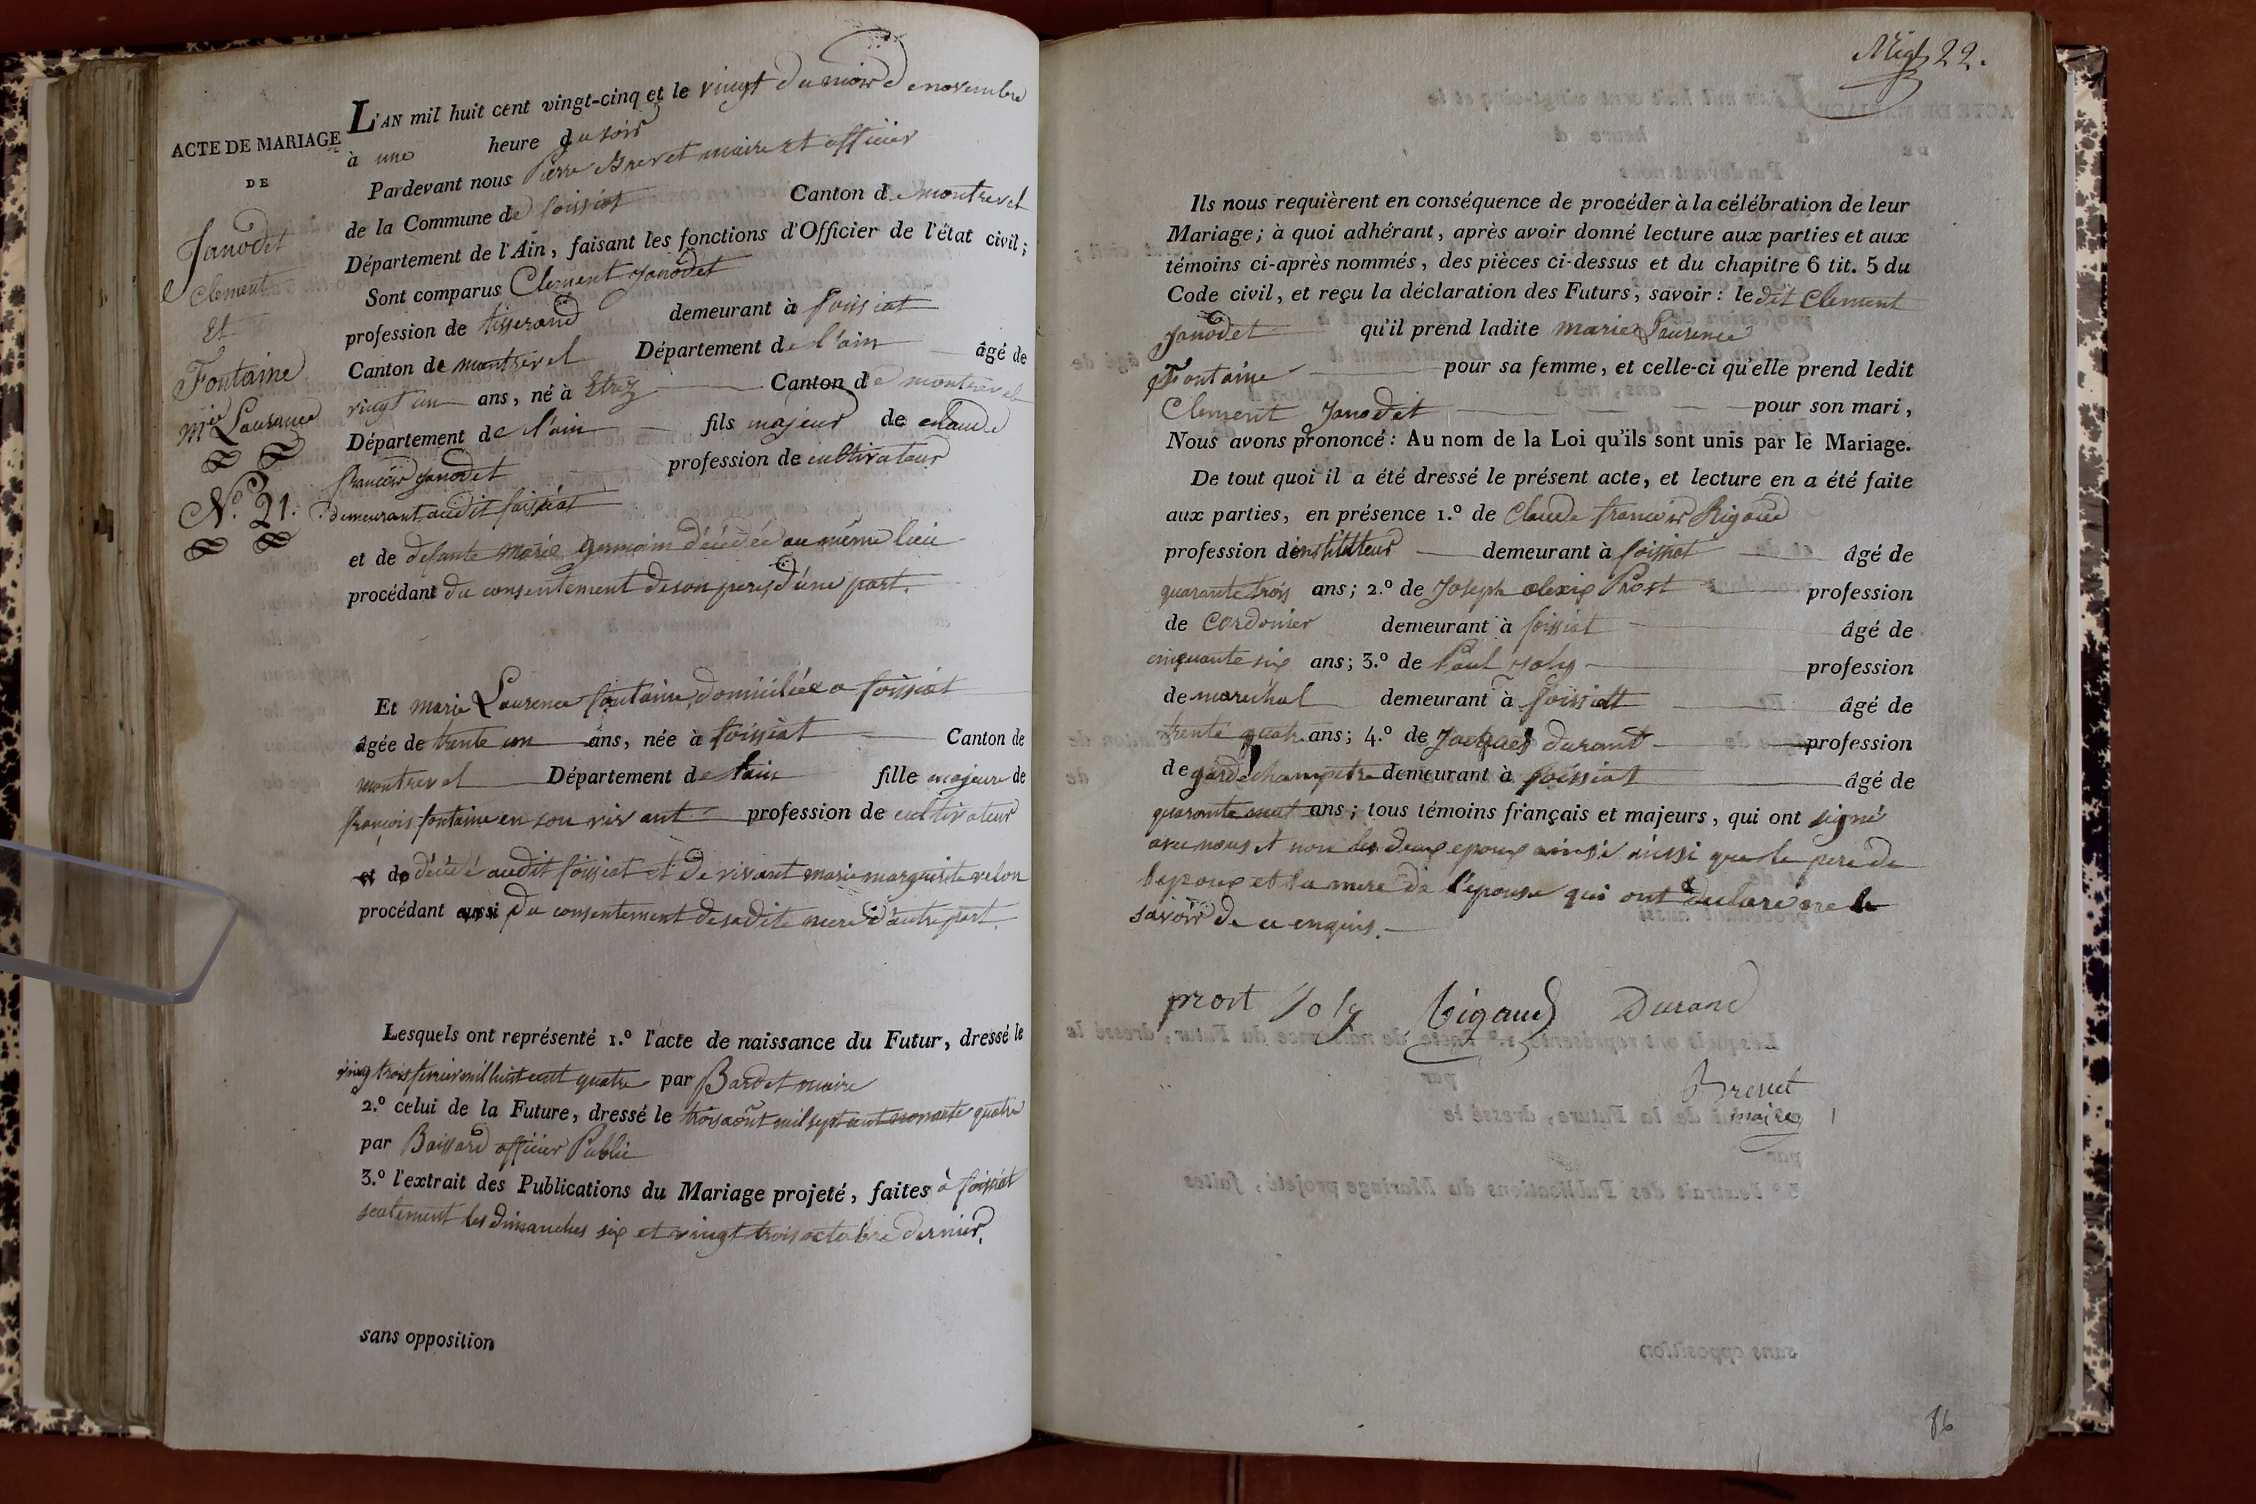 ACTE DE MARIAGE
DE
Janodet
Clement
Et
Fontaine
Mie Laurence
N.o 21.
L'AN mil huit cent vingt-cinq et le vingt du mois de novembre
à une heure du soir
Pardevant nous Pierre Brevet maire et officier
de la Commune de foissiat Canton de montrevel
Département de l'Ain, faisant les fonctions d'Officier de l'état civil;
Sont comparus Clement Janodet
profession de tisserand demeurant à foissiat
Canton de montrevel Département de l'ain âgé de
vingt un ans, né à Etrez Canton de montrevel
Département de l'ain fils majeur de claude
francois Janodet profession de cultivateur
demeurant audit foissiat
et de defunte marie germain décédée au même lieu
procédant du consentement de son pere, d'une part.
Et marie Laurence fontaine, domiciliée a foissiat
âgée de trente un ans, née à foissiat Canton de
montrevel Département de l'ain fille majeure de
françois fontaine en son vivant profession de cultivateur
et de décédé audit foissiat et de vivant marie marguerite velon
procédant aussi du consentement de sadite mere d'autre part.
Lesquels ont représenté 1.o l'acte de naissance du Futur, dressé le
ving trois fevrier mil huit cent quatre par Bardet maire
2.o celui de la Future, dressé le trois août mil sept cent nonante quatre
par Boissard officier Public
3.o l'extrait des Publications du Mariage projeté, faites à foissiat
seulement les dimanches six et vingt trois octobre dernier.
sans opposition
22.
Ils nous requièrent en conséquence de procéder à la célébration de leur
Mariage; à quoi adhérant, après avoir donné lecture aux parties et aux
témoins ci-après nommés, des pièces ci-dessus et du chapitre 6 tit. 5 du
Code civil, et reçu la déclaration des Futurs, savoir: ledit Clement
Janodet qu'il prend ladite marie Laurence
Fontaine pour sa femme, et celle-ci qu'elle prend ledit
Clement Janodet pour son mari,
Nous avons prononcé: Au nom de la Loi qu'ils sont unis par le Mariage.
De tout quoi il a été dressé le présent acte, et lecture en a été faite
aux parties, en présence 1.o de Claude francois Rigaud
profession d'instituteur demeurant à foissiat âgé de
quarante trois ans; 2.o de Joseph alexis Prost profession
de Cordonier demeurant à foissiat âgé de
cinquante six ans; 3.o de Paul Joly profession
de marechal demeurant à foissiat âgé de
trente quatre ans; 4.o de Jacques durand profession
de garde champetre demeurant à foissiat âgé de
quarante ans; tous témoins français et majeurs, qui ont signé
avec nous et non les deux epoux ainsi aussi que le pere de
l'epoux et la mere de l'epouse qui ont declaré ne le
savoir de ce enquis.
prost Joly Rigaud Durand
Brevet
maire
86